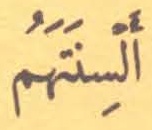 أَلْسِنَتَهُمْ